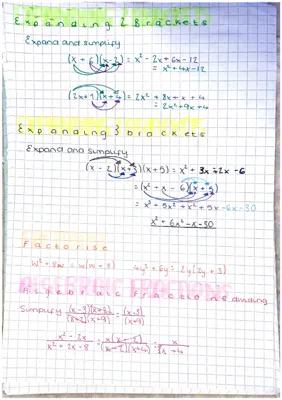 Expanding 2 Brackets
Expand and simplify
(x + 6)(x - 2) = x² - 2x + 6x - 12
= x² + 4x - 12
(2x + 1)(x + 4) = 2x² + 8x + x + 4
= 2x² + 9x + 4
Expanding 3 brackets
Expand and simplify
(x - 2)(x + 3)(x + 5) = x² + 3x - 2x - 6
= (x² + x - 6)(x + 5)
= x³ + 5x² + x² + 5x - 6x - 30
x³ + 6x² - x - 30
Factorise
w² + 8w = w(w + 8) 4y² + 6y = 2y(2y + 3)
Algebraic Fractions
Simplify
= x
x + 4